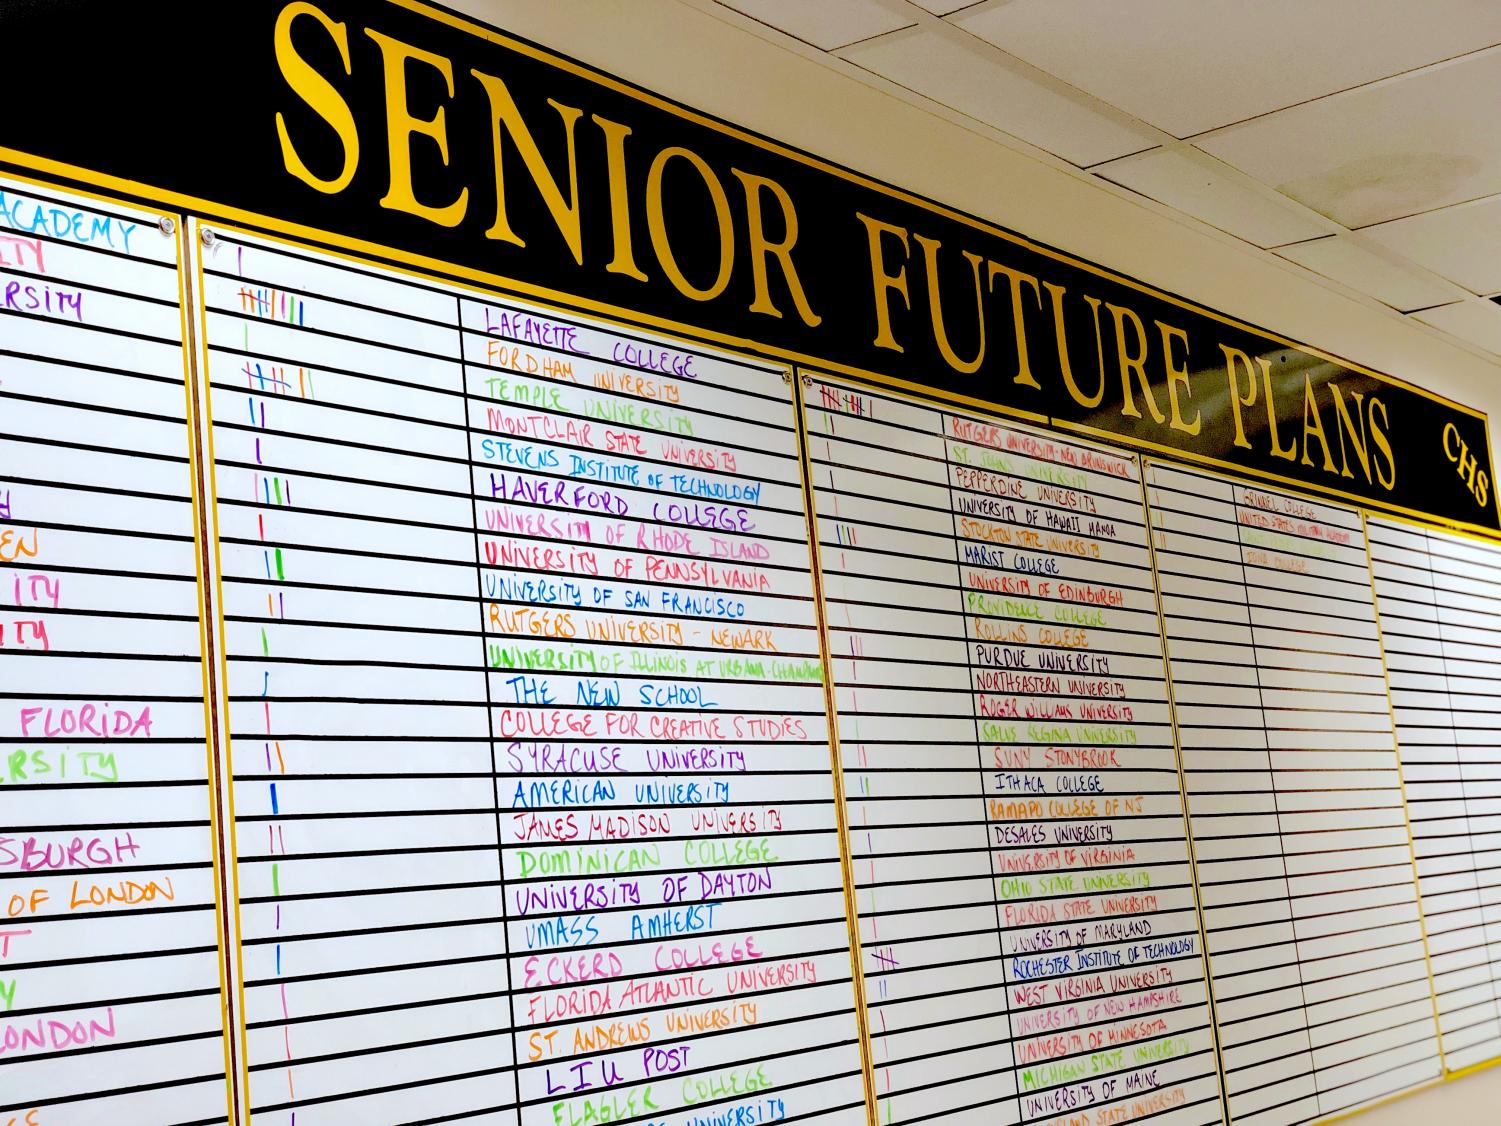 SENIOR FUTURE PLANS
CHS
ACADEMY
FLORIDA
OF LONDON
LAFAYETTE COLLEGE
FORDHAM UNIVERSITY
TEMPLE UNIVERSITY
MONTCLAIR STATE UNIVERSITY
STEVENS INSTITUTE OF TECHNOLOGY
HAVERFORD COLLEGE
UNIVERSITY OF RHODE ISLAND
UNIVERSITY OF PENNSYLVANIA
UNIVERSITY OF SAN FRANCISCO
RUTGERS UNIVERSITY - NEWARK
UNIVERSITY OF ILLINOIS AT URBANA-
THE NEW SCHOOL
COLLEGE FOR CREATIVE STUDIES
SYRACUSE UNIVERSITY
AMERICAN UNIVERSITY
JAMES MADISON UNIVERSITY
DOMINICAN COLLEGE
UNIVERSITY OF DAYTON
UMASS AMHERST
ECKERD COLLEGE
FLORIDA ATLANTIC UNIVERSITY
ST. ANDREWS UNIVERSITY
LIU POST
FLAGLER COLLEGE
UNIVERSITY
RUTGERS UNIVERSITY-NEW BRUNSWICK
ST. JOHNS UNIVERSITY
PEPPERDINE UNIVERSITY
UNIVERSITY OF HAWAII MANOA
STOCKTON STATE UNIVERSITY
MARIST COLLEGE
UNIVERSITY OF EDINBURGH
PROVIDENCE COLLEGE
ROLLINS COLLEGE
PURDUE UNIVERSITY
NORTHEASTERN UNIVERSITY
ROGER WILLIAMS UNIVERSITY
SALVE REGINA UNIVERSITY
SUNY STONYBROOK
ITHACA COLLEGE
RAMAPO COLLEGE OF NJ
DESALES UNIVERSITY
UNIVERSITY OF VIRGINIA
OHIO STATE UNIVERSITY
FLORIDA STATE UNIVERSITY
UNIVERSITY OF MARYLAND
ROCHESTER INSTITUTE OF TECHNOLOGY
WEST VIRGINIA UNIVERSITY
UNIVERSITY OF NEW HAMPSHIRE
UNIVERSITY OF MINNESOTA
MICHIGAN STATE UNIVERSITY
UNIVERSITY OF MAINE
STATE UNIVERSITY
COLLEGE
UNITED STATES MILITARY ACADEMY
IONA COLLEGE